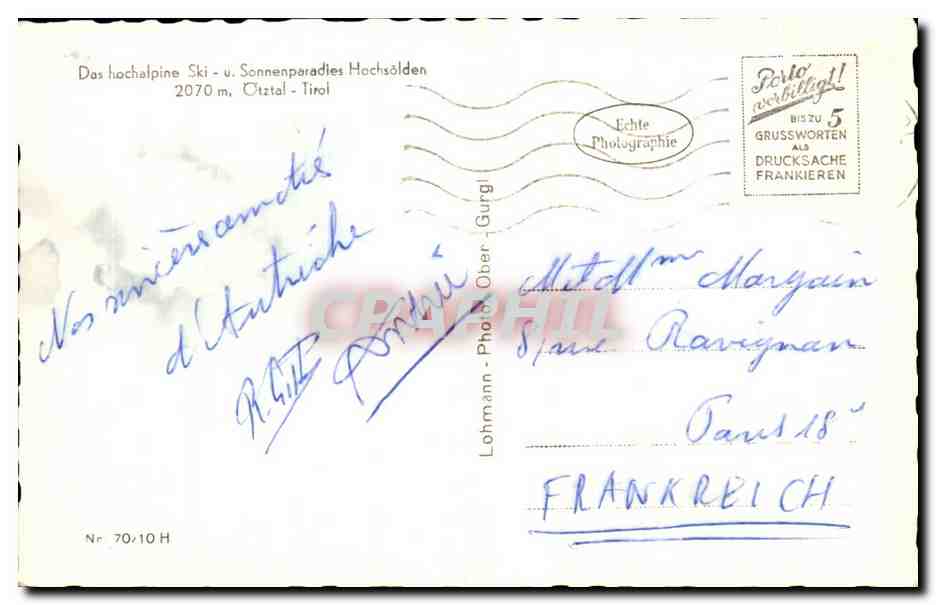 Das hochalpine Ski - u. Sonnenparadies Hochsölden
2070 m, Ötztal - Tirol
Echte
Photographie
Porto
verbilligt!
BIS ZU 5
GRUSSWORTEN
ALS
DRUCKSACHE
FRANKIEREN
Nos sincères amitiés
d'Autriche
Lohmann - Photo Ober - Gurgl
CPAPHIL
M et Mme Margain
8, rue Ravignan
Paris 18e
FRANKREICH
Nr. 70/10 H